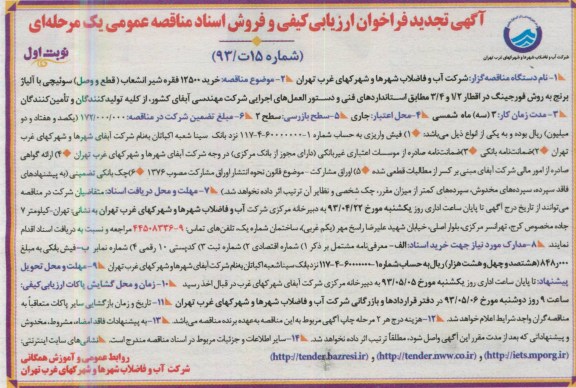 آگهی تجدید فراخوان ارزیابی کیفی و فروش اسناد مناقصه عمومی یک مرحله‌ای
(شماره ۱۵ت/۹۳)
نوبت اول
شرکت آب و فاضلاب شهرها و شهرکهای غرب تهران
۱-نام دستگاه مناقصه‌گزار: شرکت آب و فاضلاب شهرها و شهرکهای غرب تهران ۲-موضوع مناقصه: خرید ۱۲۵۰۰ فقره شیر انشعاب (قطع و وصل) سوئیچی با آلیاژ
برنج به روش فورجینگ در اقطار ۱/۲ و ۳/۴ مطابق استانداردهای فنی و دستورالعمل‌های اجرایی شرکت مهندسی آبفای کشور، از کلیه تولیدکنندگان و تأمین‌کنندگان
۳-مدت زمان کار: ۳ (سه) ماه شمسی ۴-محل اعتبار: جاری ۵-سطح بازرسی: سطح ۲ ۶-مبلغ تضمین شرکت در مناقصه: ۱۷۲/۰۰۰/۰۰۰ (یکصد و هفتاد و دو
میلیون) ریال بوده و به یکی از انواع ذیل می‌باشد: ۱) فیش واریزی به حساب شماره ۱-۶۰۰۰۰۰۰-۴-۱۱۷ نزد بانک سینا شعبه اکباتان به‌نام شرکت آبفای شهرها و شهرکهای غرب
تهران ۲)ضمانتنامه بانکی ۳)ضمانتنامه صادره از موسسات اعتباری غیربانکی (دارای مجوز از بانک مرکزی) در وجه شرکت آبفای شهرها و شهرکهای غرب تهران ۴) ارائه گواهی
صادره از امور مالی شرکت آبفای مبنی بر کسر از مطالبات قطعی شده ۵) اوراق مشارکت - موضوع قانون نحوه انتشار اوراق مشارکت مصوب ۱۳۷۶ ۶)چک بانکی تضمینی (به پیشنهادهای
فاقد سپرده، سپرده‌های مخدوش، سپرده‌های کمتر از میزان مقرر، چک شخصی و نظایر آن ترتیب اثر داده نخواهد شد.) ۷-مهلت و محل دریافت اسناد: متقاضیان شرکت در مناقصه
می‌توانند از تاریخ درج آگهی تا پایان ساعت اداری روز یکشنبه مورخ ۹۳/۰۴/۲۲ به دبیرخانه مرکزی شرکت آب و فاضلاب شهرها و شهرکهای غرب تهران به نشانی تهران-کیلومتر ۷
جاده مخصوص کرج، تهرانسر مرکزی، بلوار اصلی، خیابان شهید علیرضا راسخ مهر (یکم غربی)، ساختمان شماره یک، تلفن‌های تماس: ۹-۴۴۵۰۸۳۳۶ مراجعه و نسبت به دریافت اسناد اقدام
نمایند ۸-مدارک مورد نیاز جهت خرید اسناد: الف-معرفی‌نامه مشتمل بر ذکر ۱) شماره اقتصادی ۲) شماره ثبت ۳) کدپستی ۱۰ رقمی ۴) شماره نمابر ب-فیش بانکی به مبلغ
۸۴۸/۰۰۰ (هشتصد و چهل و هشت هزار) ریال به حساب شماره ۱-۶۰۰۰۰۰۰-۴-۱۱۷ نزد بانک سینا شعبه اکباتان به‌نام شرکت آبفای شهرها و شهرکهای غرب تهران ۹-مهلت و محل تحویل
پیشنهاد: تا پایان ساعت اداری روز یکشنبه مورخ ۹۳/۰۵/۰۵ به دبیرخانه مرکزی شرکت آبفای شهرها و شهرکهای غرب تهران در قبال اخذ رسید ۱۰-زمان و محل گشایش پاکات ارزیابی کیفی:
ساعت ۹ روز دوشنبه مورخ ۹۳/۰۵/۰۶ در دفتر قراردادها و بازرگانی شرکت آب و فاضلاب شهرها و شهرکهای غرب تهران ۱۱-تاریخ و زمان بازگشایی سایر پاکات متعاقباً به
مناقصه‌گران واجد شرایط اعلام خواهد شد. ۱۲-هزینه درج هر ۲ مرحله چاپ آگهی مربوط به این مناقصه به‌عهده برنده مناقصه می‌باشد ۱۳-به پیشنهادات فاقد امضاء، مشروط، مخدوش
و پیشنهاداتی که بعد از مدت مقرر این آگهی واصل شود، مطلقاً ترتیب اثر داده نخواهد شد. ۱۴-سایر اطلاعات و جزئیات مربوط در اسناد مناقصه مندرج است. نشانی‌های سایت اینترنتی:
(http://iets.mporg.ir) و (http://tender.nww.co.ir) و (http://tender.bazresi.ir)
روابط عمومی و آموزش همگانی
شرکت آب و فاضلاب شهرها و شهرکهای غرب تهران